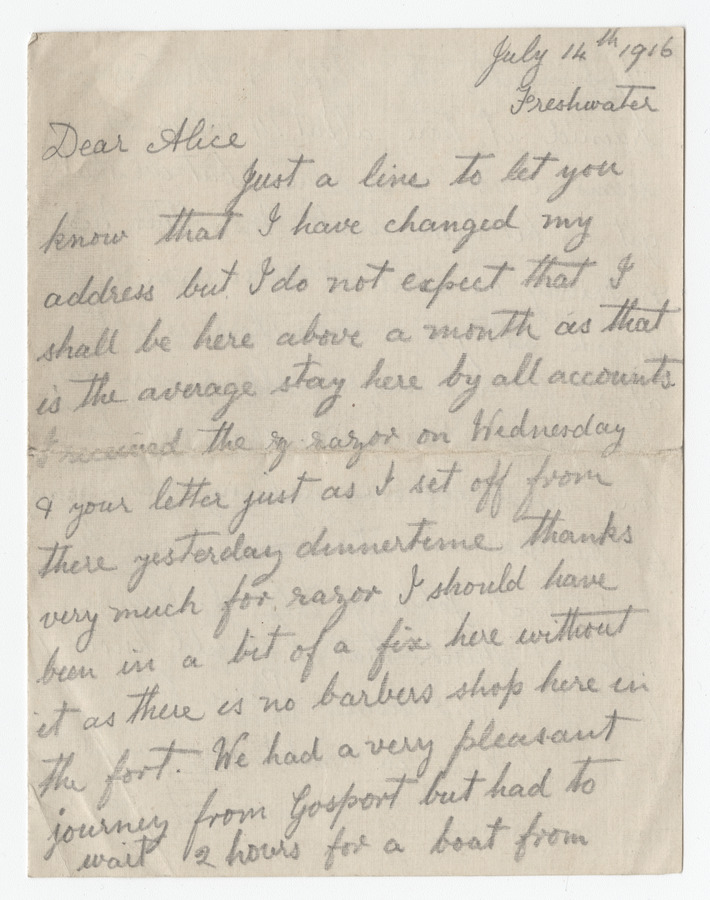 July 14th 1916
Freshwater
Dear Alice
Just a line to let you
know that I have changed my
address but I do not expect that I
shall be here above a month as that
is the average stay here by all accounts.
I received the rz razor on Wednesday
& your letter just as I set off from
there yesterday dinnertime thanks
very much for razor I should have
been in a bit of a fix here without
it as there is no barbers shop here in
the fort. We had a very pleasant
journey from Gosport but had to
wait 2 hours for a boat from